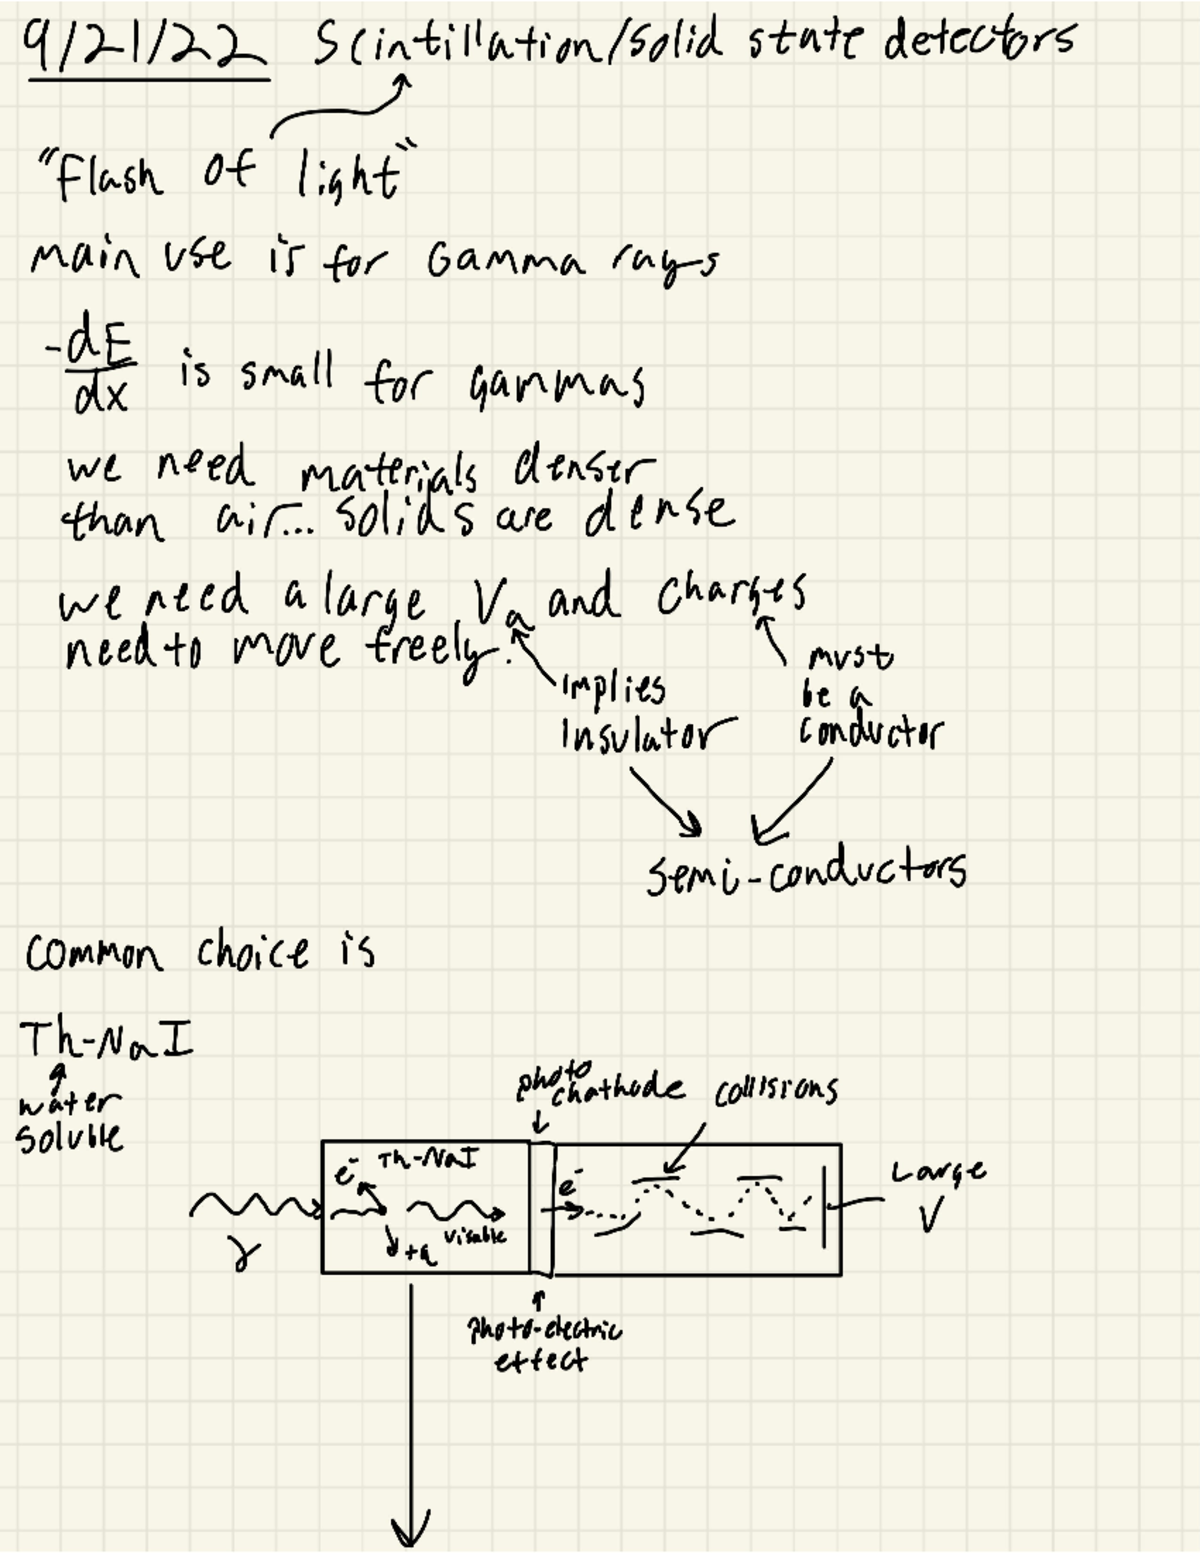 9/21/22 Scintillation/solid state detectors
"Flash of light"
main use is for Gamma rays
-dE/dx is small for gammas
we need materials denser
than air... solids are dense
we need a large Va and charges
need to move freely.
implies
insulator
must
be a
conductor
semi-conductors
common choice is
Th-NaI
water
soluble
photo
chathode
collisions
e⁻ Th-NaI
+q
visable
e⁻
Large
V
γ
photo-electric
effect